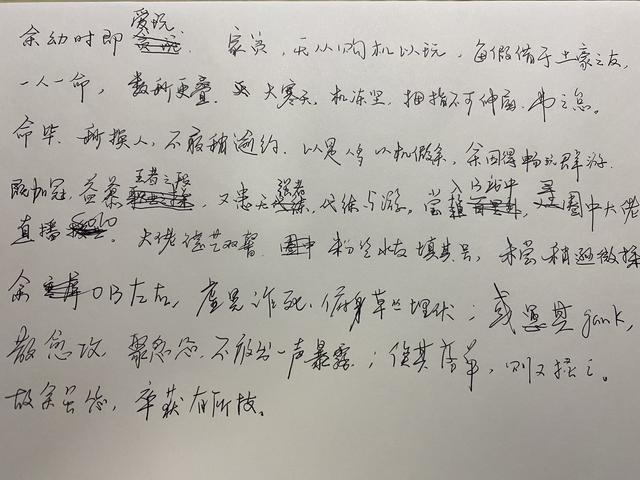 余幼时即爱玩。家贫，无从购机以玩，每假借于土豪之友，
一人一命，数所更叠。天大寒，机冻坚，拇指不可伸屈，弗之怠。
命毕，所换人，不敢稍逾约。以是人多以机假余，余因得畅玩群游。
既加冠，益慕王者之段，又患无强者代练与游。尝入B站中寻圈中大佬
直播solo。大佬德艺双馨，粉丝水友填其号，未尝稍逊微操
余OB左右，虚晃诈死，俯身草丛埋伏；或遇其gank，
散忽攻，聚忽忽，不敢出一声暴露；俟其落单，则又扰之。
故余虽怂，卒获有所技。